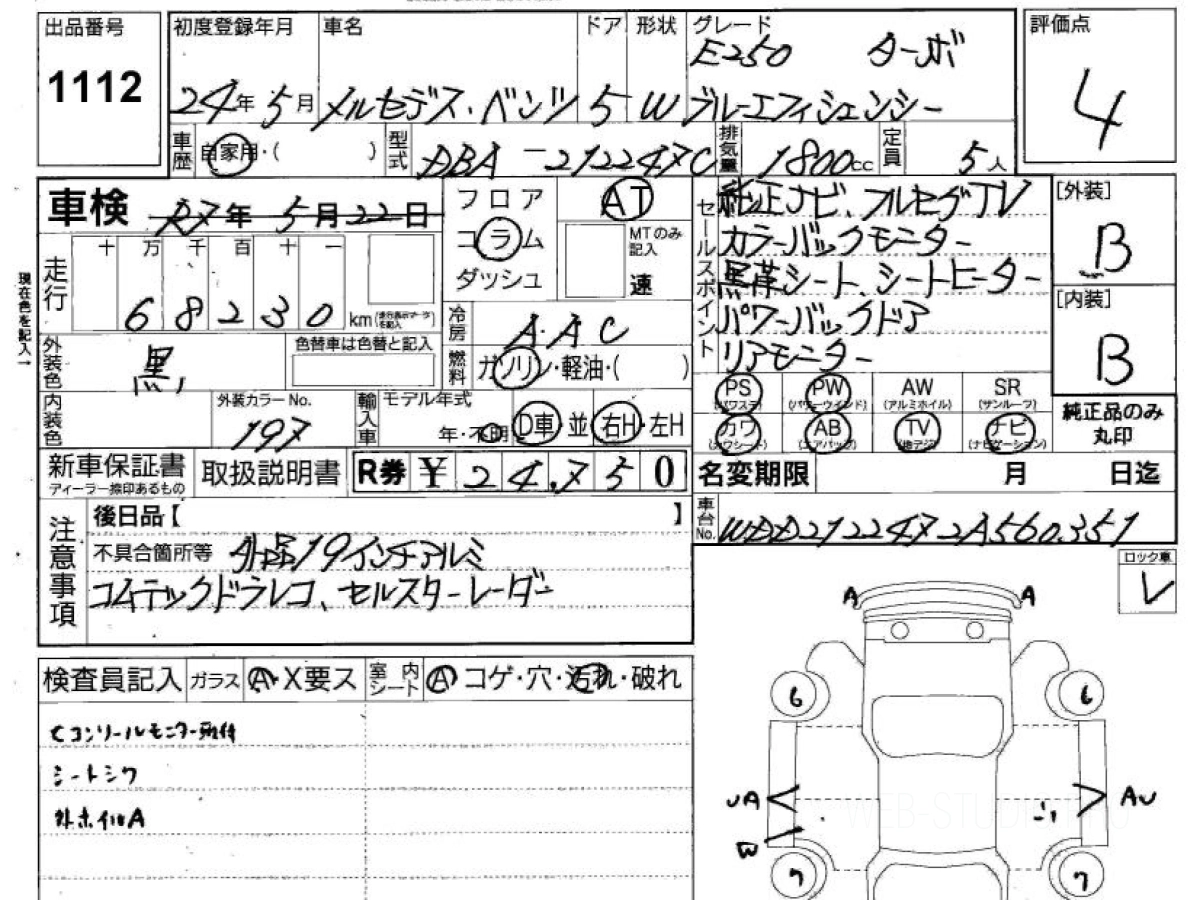 出品番号 1112
初度登録年月 24年5月
車名 メルセデス・ベンツ
ドア 5
形状 W
グレード E250 ターボ
ブルーエフィシェンシー
評価点 4
車歴 自家用・( )
型式 DBA-212247C
排気量 1800cc
定員 5人
車検 年5月22日
フロア
コラム
ダッシュ
AT
MTのみ記入
速
セールスポイント
純正ナビ、フルセグTV
カラーバックモニター
黒革シート、シートヒーター
パワーバックドア
リアモニター
[外装] B
[内装] B
現在色を記入→
走行 十万千百十一
68230 km
冷房 AAC
燃料 ガソリン・軽油・( )
外装色 黒
色替車は色替と記入
内装色
外装カラーNo. 197
輸入車
モデル年式 年・不明
D車 並 右H・左H
PS (パワステ)
PW (パワーウインド)
AW (アルミホイル)
SR (サンルーフ)
カワ (カワシート)
AB (エアバック)
TV (地デジ)
ナビ (ナビゲーション)
純正品のみ丸印
新車保証書
ディーラー捺印あるもの
取扱説明書
R券 ¥24,750
名変期限 月 日迄
車台No. WDD2122472A560351
注意事項
後日品【 】
不具合箇所等 外品19インチアルミ
コムテックドラレコ、セルスターレーダー
ロック車 レ
検査員記入
ガラス A・X要ス
室内シート A コゲ・穴・汚れ・破れ
Cコンソールモニター取付
シートシワ
外ホイルA
A A
6 6
UA AU
W
7 7
WEB-STUDIO.PRO